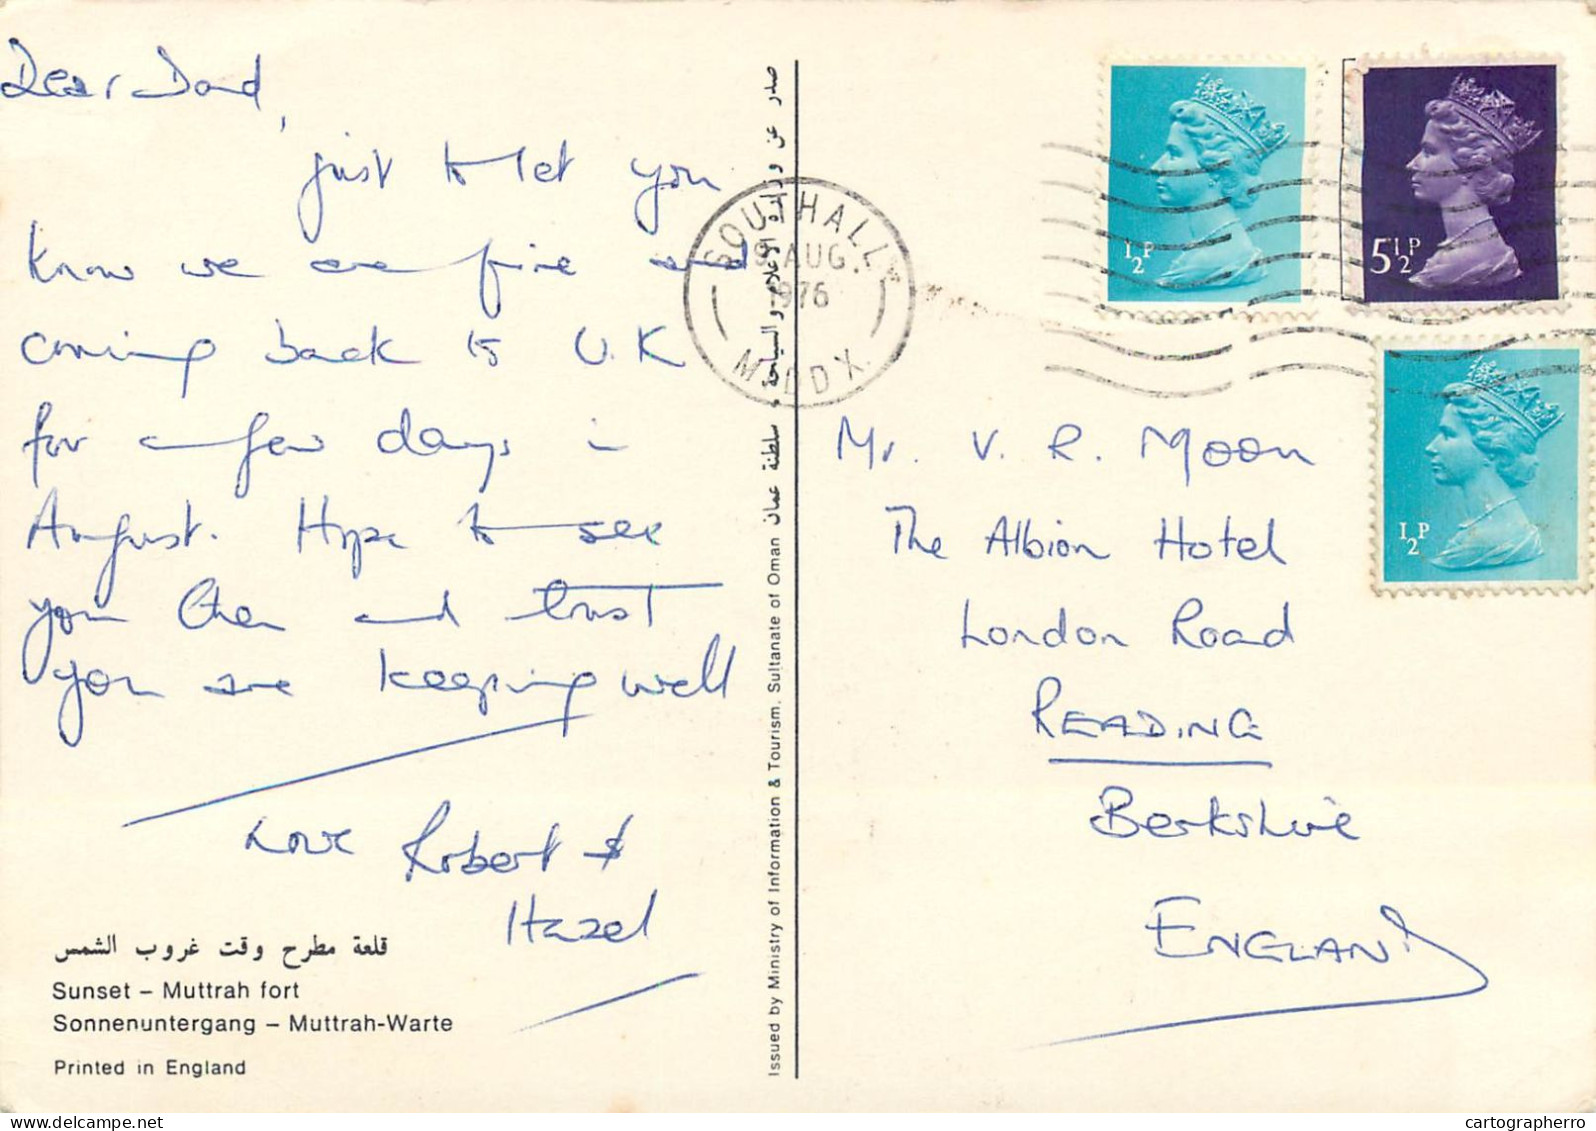 Dear Dad,
just to let you
know we are fine and
coming back to U.K
for a few days in
August. Hope to see
you then and trust
you are keeping well
Love Robert &
Hazel
قلعة مطرح وقت غروب الشمس
Sunset – Muttrah fort
Sonnenuntergang – Muttrah-Warte
Printed in England
صدر عن وزارة الاعلام والسياحة، سلطنة عمان
Issued by Ministry of Information & Tourism. Sultanate of Oman
SOUTHALL
9 AUG.
1976
MIDDX.
½P
5½P
½P
Mr. V. R. Moon
The Albion Hotel
London Road
READING
Berkshire
ENGLAND
cartographerro